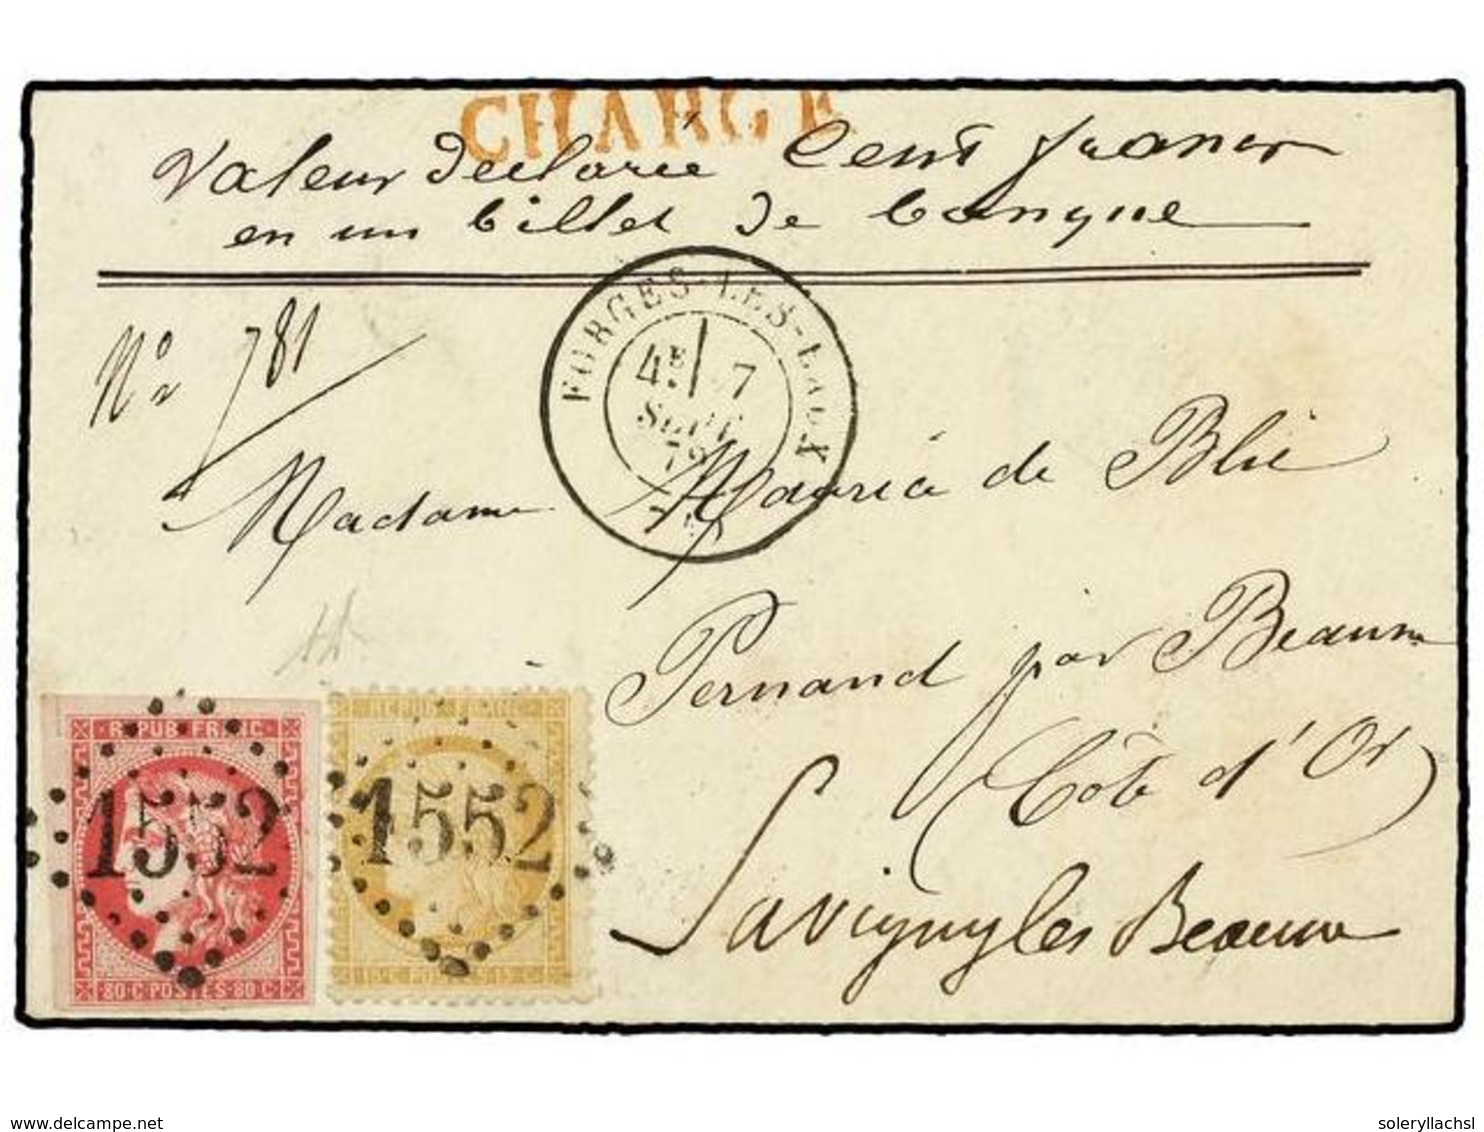 CHARGE
Valeur déclarée Cent francs
en un billet de banque
FORGES-LES-EAUX
4E 7
SEPT.
72
No 781
Madame Maurice de Blic
Pernand par Beaune
Côte d'Or
Savigny les Beaune
REPUB. FRANC.
1552
80·C·POSTES·80·C
REPUB. FRANC.
1552
15·C·POSTES·15·C
www.delcampe.net
soleryllachsl